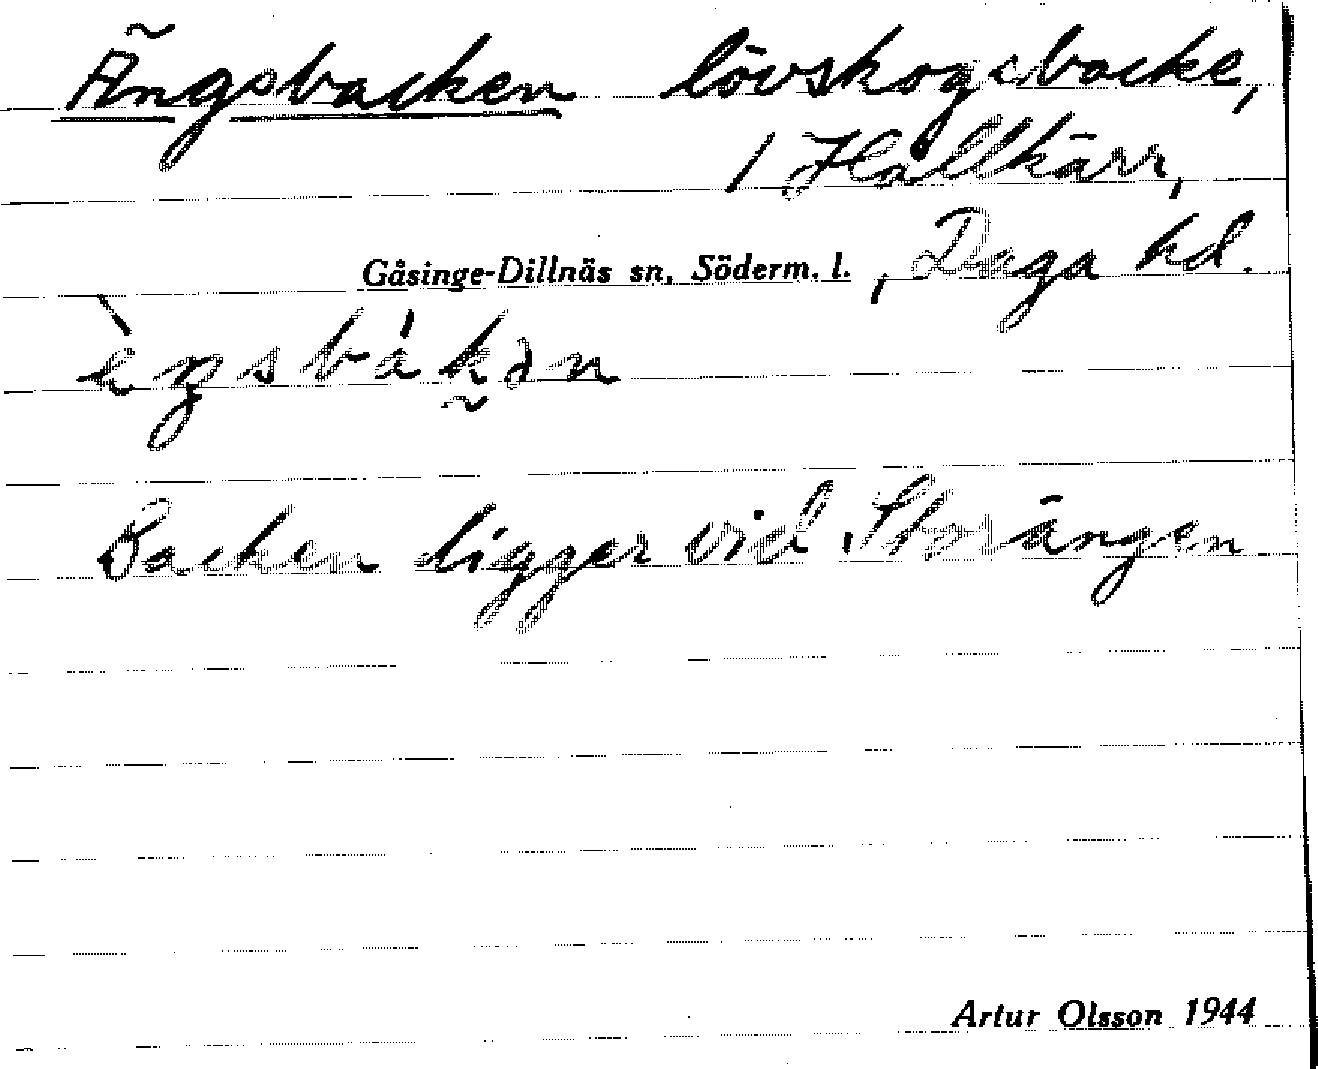 Ängsbacken lövskogsbacke,
1 Hållkärr,
Gåsinge-Dillnäs sn, Söderm. l., Daga hd.
Backen ligger vid Storängen
Artur Olsson 1944